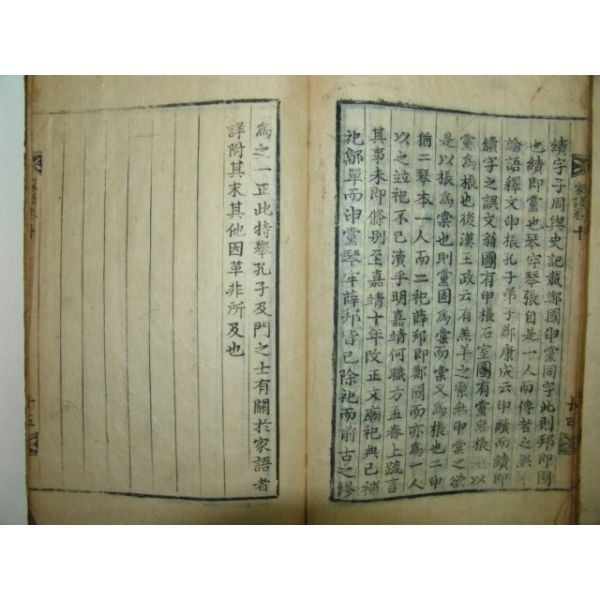 續字子周與史記載鄭國申黨同字此則邦即國
也績即黨也琴牢琴張自是一人而傳者之誤
論語釋文申棖孔子弟子鄭康成云申續而續即
績字之誤文翁圖有申棖石室圖有黨無棖以
黨為棖也後漢王政云有羔羊之潔無申棠之欲
是以棖為棠也則黨固為黨而棠又為棖也二申
猶二琴本一人而二祀薛邦即鄭國而亦為一人
以之竝祀不已瀆乎明嘉靖何職方孟春上疏言
其事未即俻別至嘉靖十年改正末廟祀典已補
祀鄡單而申黨琴牢薛邦皆已除祀而前古之謬
為之一正此特舉孔子及門之士有關於家語者
詳附其末其他因革非所及也
家語卷十
十五
家語卷十
十四